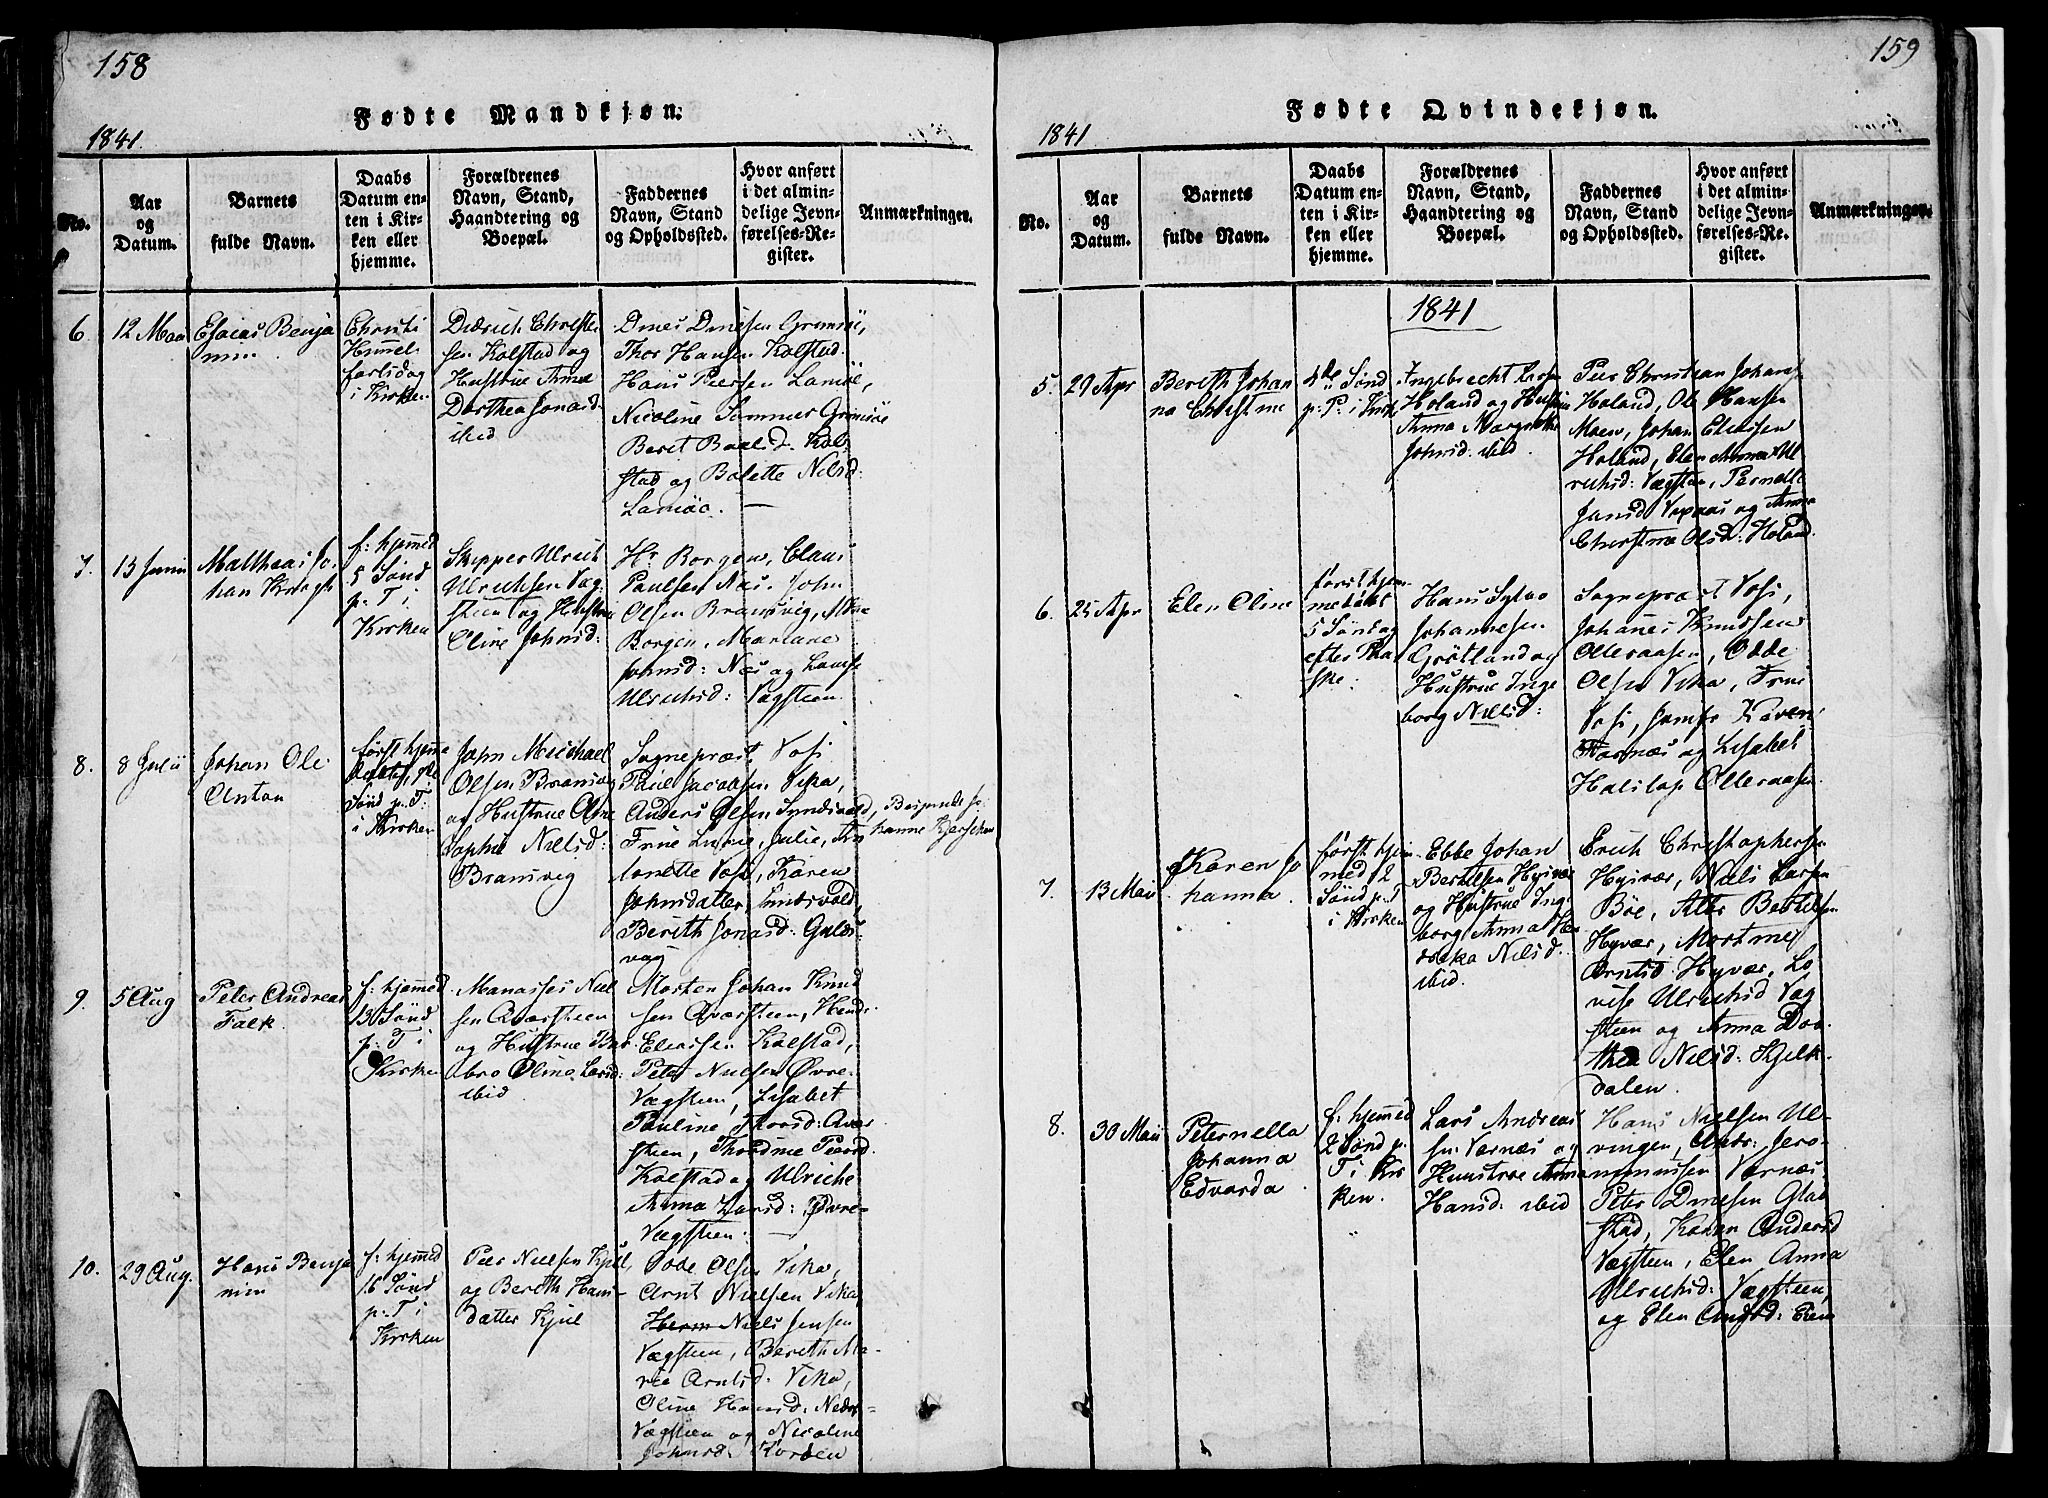 158
Fødte Mandkjøn.
1841.
No.
Aar
og
Datum.
Barnets
fulde Navn.
Daabs
Datum en-
ten i Kir-
ken eller
hjemme.
Forældrenes
Navn, Stand,
Haandtering og
Boepæl.
Faddernes
Navn, Stand
og Opholdssted.
Hvor anført
i det almin-
delige Jevn-
førelses-Re-
gister.
Anmærkninger.
6.
12 Maii
Esaias Benja
min
Christi
Himmel
fartsdag
i Kirken
Didrich Christen
sen Kolstad og
Hustrue Anne
Dorthea Jonasd.
ibid
Ones Onesen Gromsöe,
Thor Hansen Kolstad
Hans Peersen Lamöe,
Nicoline Gromsöe
Beret d: Kol
stad og Bolette Nilsd:
Lamöe. —
7.
13 Junii
Mathias Jo
han Krogh
f: hjemmed
5 Sönd
p: T i
Kirken
Skipper Ulrich
Ulrichsen Væg
steen og Hustrue
Oline Johnsd:
Hr Borgen, Claus
Paulsen Næs, John
Olsen Bransvig,
Borgen, Mariane
Johnsd: Næs og
Ulrichsd: Vægsteen
8.
8 Julii
Johan Ole
Anton
först hjemme
Sönd p. T:
i Kirken
John Michael
Olsen Bransvig
og Hustrue
Sophie Nielsd:
Bransvig
Sognepræst Vosi
Paul Jacobsen Vika,
Anders Olsen Sundsvold,
Frue Julie, An
tonette Vosi, Karen
Johnsdatter Sundsvold,
Berith Jonasd: Gulds-
vog
Jo
hanne
9.
5 Aug
Peter Andreas
Falk.
f: hjemmed
13 Sönd
p: T i
Kirken
Manasses Niel
sen Qværsteen
og Hustrue Bar
bro Oline Larsd:
ibid
Morten Johan Knud
sen Qværsteen,
Eliassen Kolstad,
Peter Nielsen Øvre-
Vægsteen, Lisabet
Pauline Thorsd: Qvær
steen, Thordine Peersd.
Kolstad og Ulriche
Anna Larsd: Øvre-
Vægsteen. —
10.
29 Aug.
Hans Benja
min
f: hjemmed
16 Sönd
p: T i
Kirken
Peer Nielsen Kjul
og Berith Hans-
datter Kjul
Odde Olsen Vika,
Arnt Nielsen Vika,
Niels Jensen
Vægsteen, Berith Ma-
rie Arntsd: Vika,
Oline Hansd: Nedre-
Vægsteen og Nicoline
Johnsd. Horden
159
Fødte Qvindekjøn.
1841
No.
Aar
og
Datum.
Barnets
fulde Navn.
Daabs
Datum en-
ten i Kir-
ken eller
hjemme.
Forældrenes
Navn, Stand,
Haandtering og
Boepæl.
Faddernes
Navn, Stand
og Opholdssted.
Hvor anført
i det almin-
delige Jevn-
førelses-Re-
gister.
Anmærkninger.
1841
5.
29 Apr
Berith Johan
na Christine
4de Sönd
p: P: i Kirk.
Ingebrecht Larsen
Holand og Hustrue
Anna Margrethe
Johnsd. ibid.
Peer Christian Johans
Holand, Ole Hansen
Moen, Johan Eliassen
Holand, Elen Anna Ul
richsd: Vægsteen, Pernelle
Jansd og Anna
Christine Olsd: Holand
6.
25 Apr
Elen Oline
först hjem
medöbt
5 Söndag
efter Paa
ske.
Hans Sylvo
Johannesen
Grötland og
Hustrue Inge
borg Nielsd:
Sognepræst Vosi,
Johanes Knudsen
Olleraasen, Odde
Olsen Vika, Frue
Vosi, Jomfr Karen
og Lisabet
Olleraasen
7.
13 Maii
Karen Jo
hanna
först hjem
med 2
Sönd p. T
i Kirken
Ebbe Johan
Bertelsen Hysvær
og Hustrue Inge
borg Anna
Nielsd.
ibid.
Erich Christophersen
Hysvær, Niels Larsen
Böe, Bertelsen
Hysvær, Mortine
Arntsd. Hysvær, Lo
vise Ulrichsd Væg
steen og Anna Dor
thea Nielsd: Kjelk-
dalen.
8.
30 Maii
Peternella
Johanna
Edvarda
f: hjemmed
2 Sönd p.
T i Kir
ken.
Lars Andreas
sen Værnæs og
Hustrue Anna
Hansd: ibid
Hans Nielsen Ul-
vingen, Andr: Jero-
nimussen Værnæs
Peter Onesen Glad
stad, Karen Andersd
Vægsteen, Elen Anna
Ulrichsd: Vægsteen,
og Elen